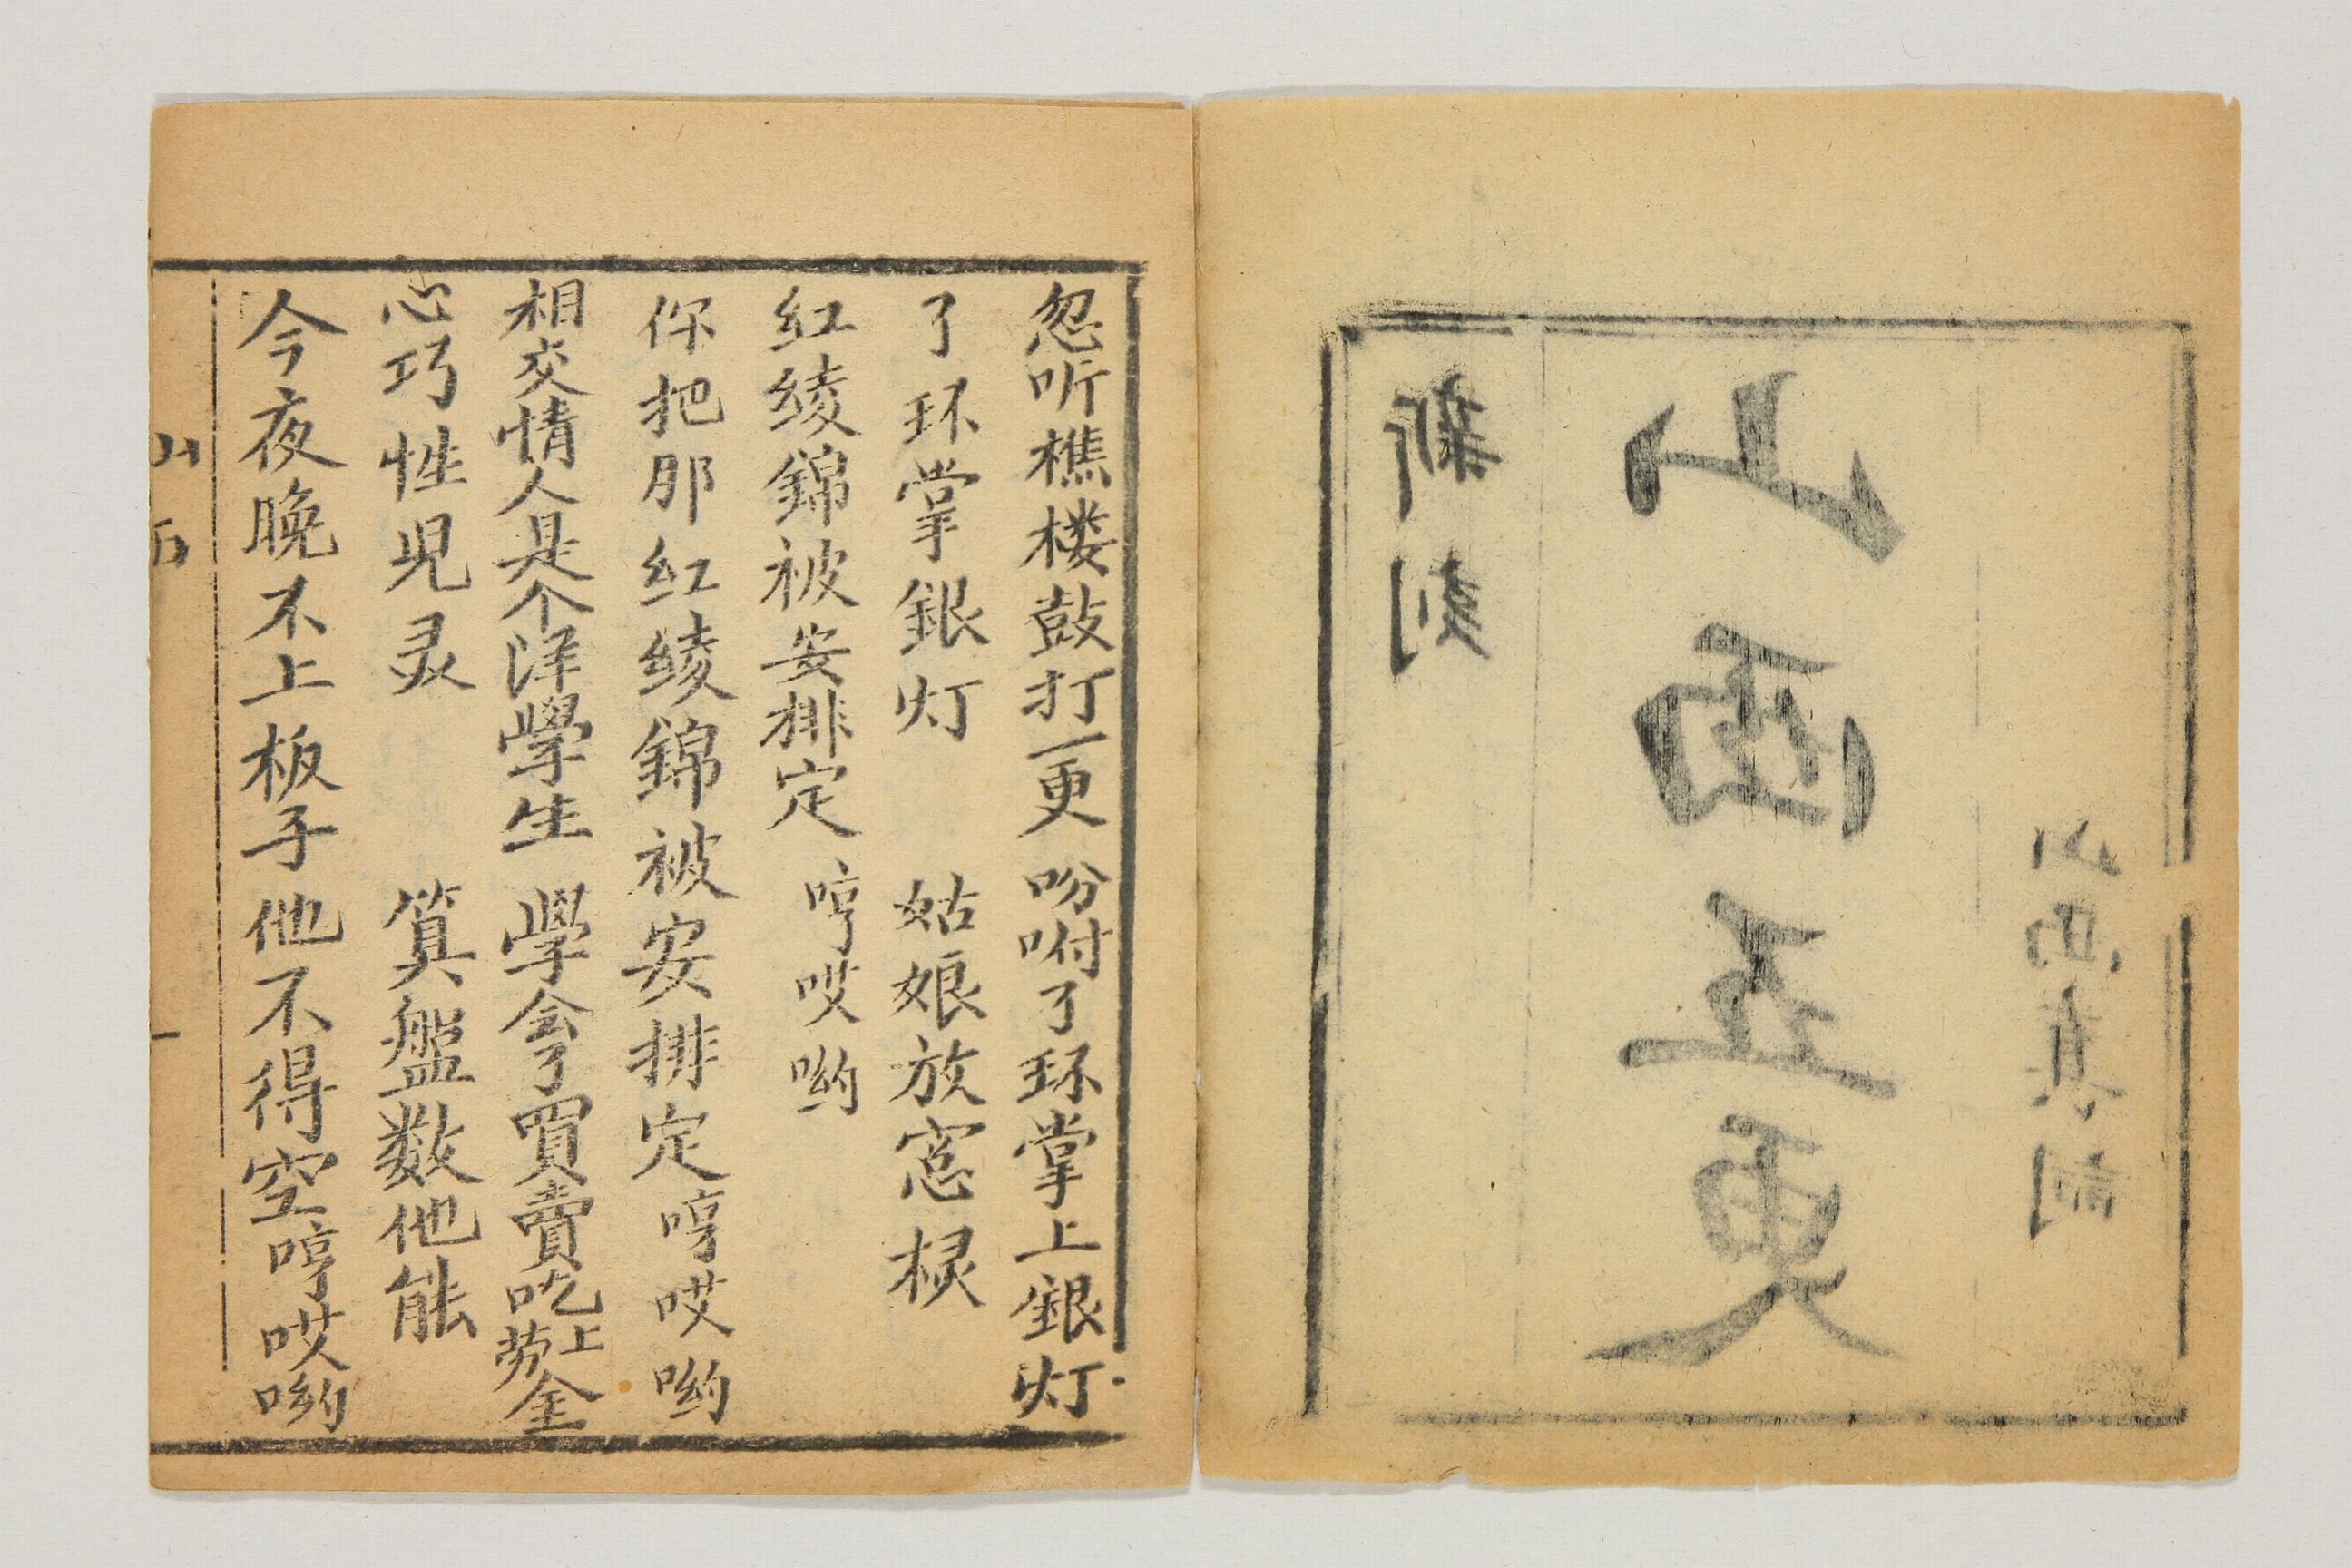 山西真詞
山西五更
新刻
忽听樵楼鼓打一更 吩咐了环掌上銀灯
了环掌銀灯 姑娘放窓棂
红绫錦被安排定 哼哎哟
你把那红绫錦被安排定 哼哎哟
相交情人是个洋學生 學會了買賣吃上劳金
心巧性児灵 算盤数他能
今夜晚不上板子他不得空 哼哎哟
山西
一